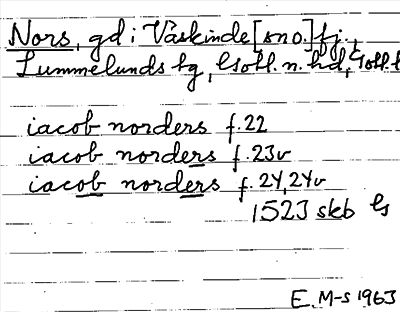 Nors, gd i Väskinde [sno.] fj.,
Lummelunds tg, Gotl. n. hd, Gotl. l
iacob norders f. 22
iacob norders f. 23v
iacob norders f. 24, 24v
1523 skb Gs
E. M-s 1963